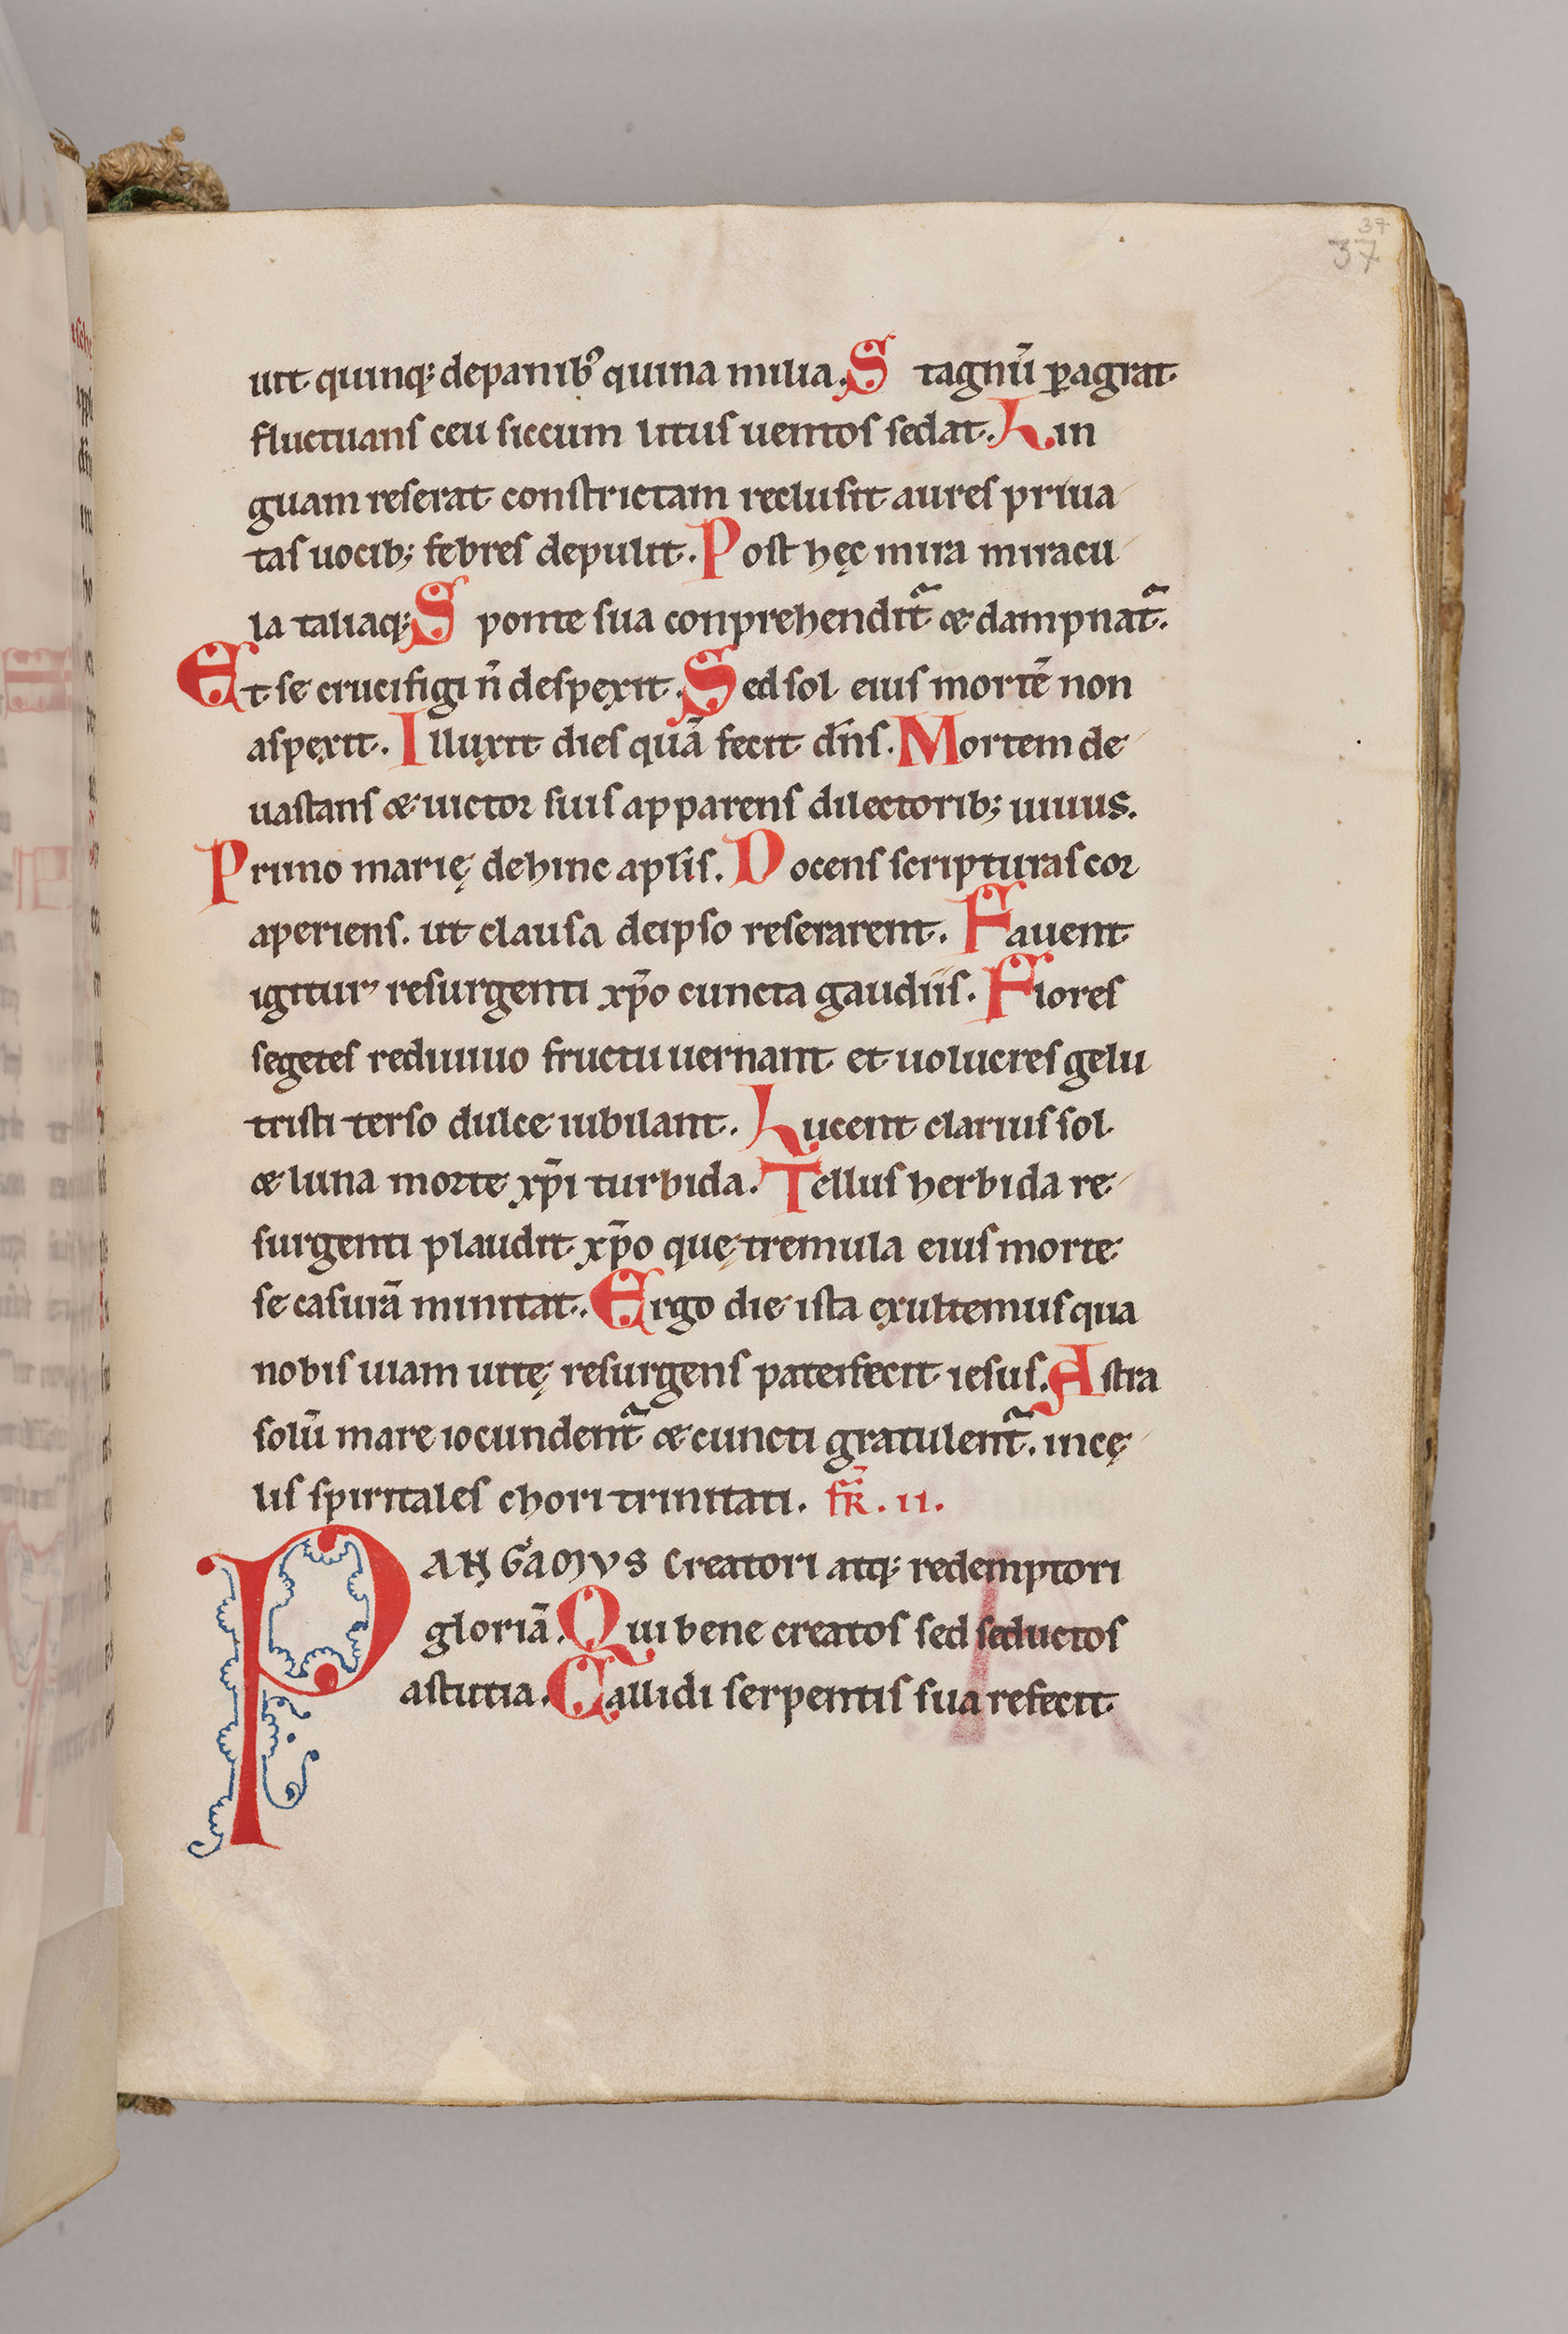 37
37
uit quinq; de panib᷒ quina milia. Stagnū ꝑagrat
fluctuans ceu siccum litus uentos sedat. Lin
guam reserat constrictam reclusit aures priua
tas uocib; febres depulit. Post hęc mira miracu
la taliaq; Sponte sua conprehenditᷓ & dampnatᷓ.
Et se crucifigi n̄ despexit. Sed sol eius mortē non
aspexit. Illuxit dies quā fecit dn̄s. Mortem de
uastans & uictor suis apparens dilectorib; uiuus.
Primo marię dehinc apl̄is. Docens scripturas cor
aperiens. ut clausa deipso reserarent. Fauent
igitur resurgenti xp̄o cuncta gaudiis. Flores
segetes rediuiuo fructu uernant et uolucres gelu
tristi terso dulce iubilant. Lucent clarius sol
& luna morte xp̄i turbida. Tellus herbida re
surgenti plaudit xp̄o quę tremula eius morte
se casurā minitat. Ergo die ista exultemus qua
nobis uiam uitę resurgens patefecit iesus. Astra
solū mare iocundentᷓ & cuncti gratulentᷓ. in cę
lis spiritales chori trinitati. fr̄. ii.
PANGAMVS Creatori atq; redemptori
gloriā. Qui bene creatos sed seductos
astutia. Callidi serpentis sua refecit